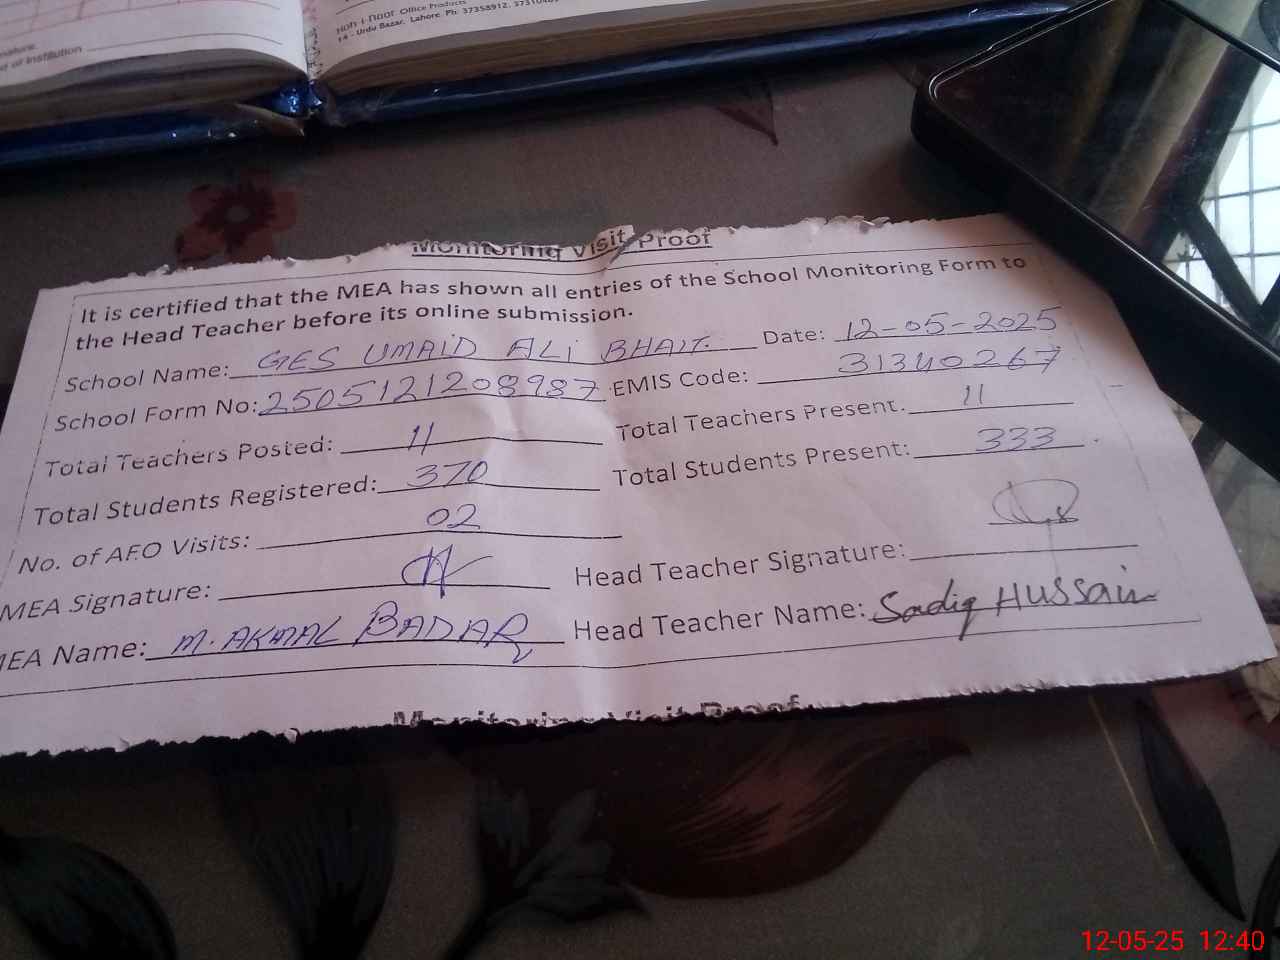 nature
d of Institution
Hoh-i-noor Office Products
14 - Urdu Bazar, Lahore. Ph: 37358912,
Monitoring Visit Proof
It is certified that the MEA has shown all entries of the School Monitoring Form to
the Head Teacher before its online submission.
School Name: GES UMAID ALI BHAIT. Date: 12-05-2025
School Form No: 2505121208987 EMIS Code: 31340267
Total Teachers Posted: 11 Total Teachers Present. 11
Total Students Registered: 370 Total Students Present: 333
No. of AEO Visits: 02
MEA Signature: Head Teacher Signature:
MEA Name: M. AKMAL BADAR Head Teacher Name: Sadiq HUSSain
Monitoring Visit Proof
12-05-25 12:40